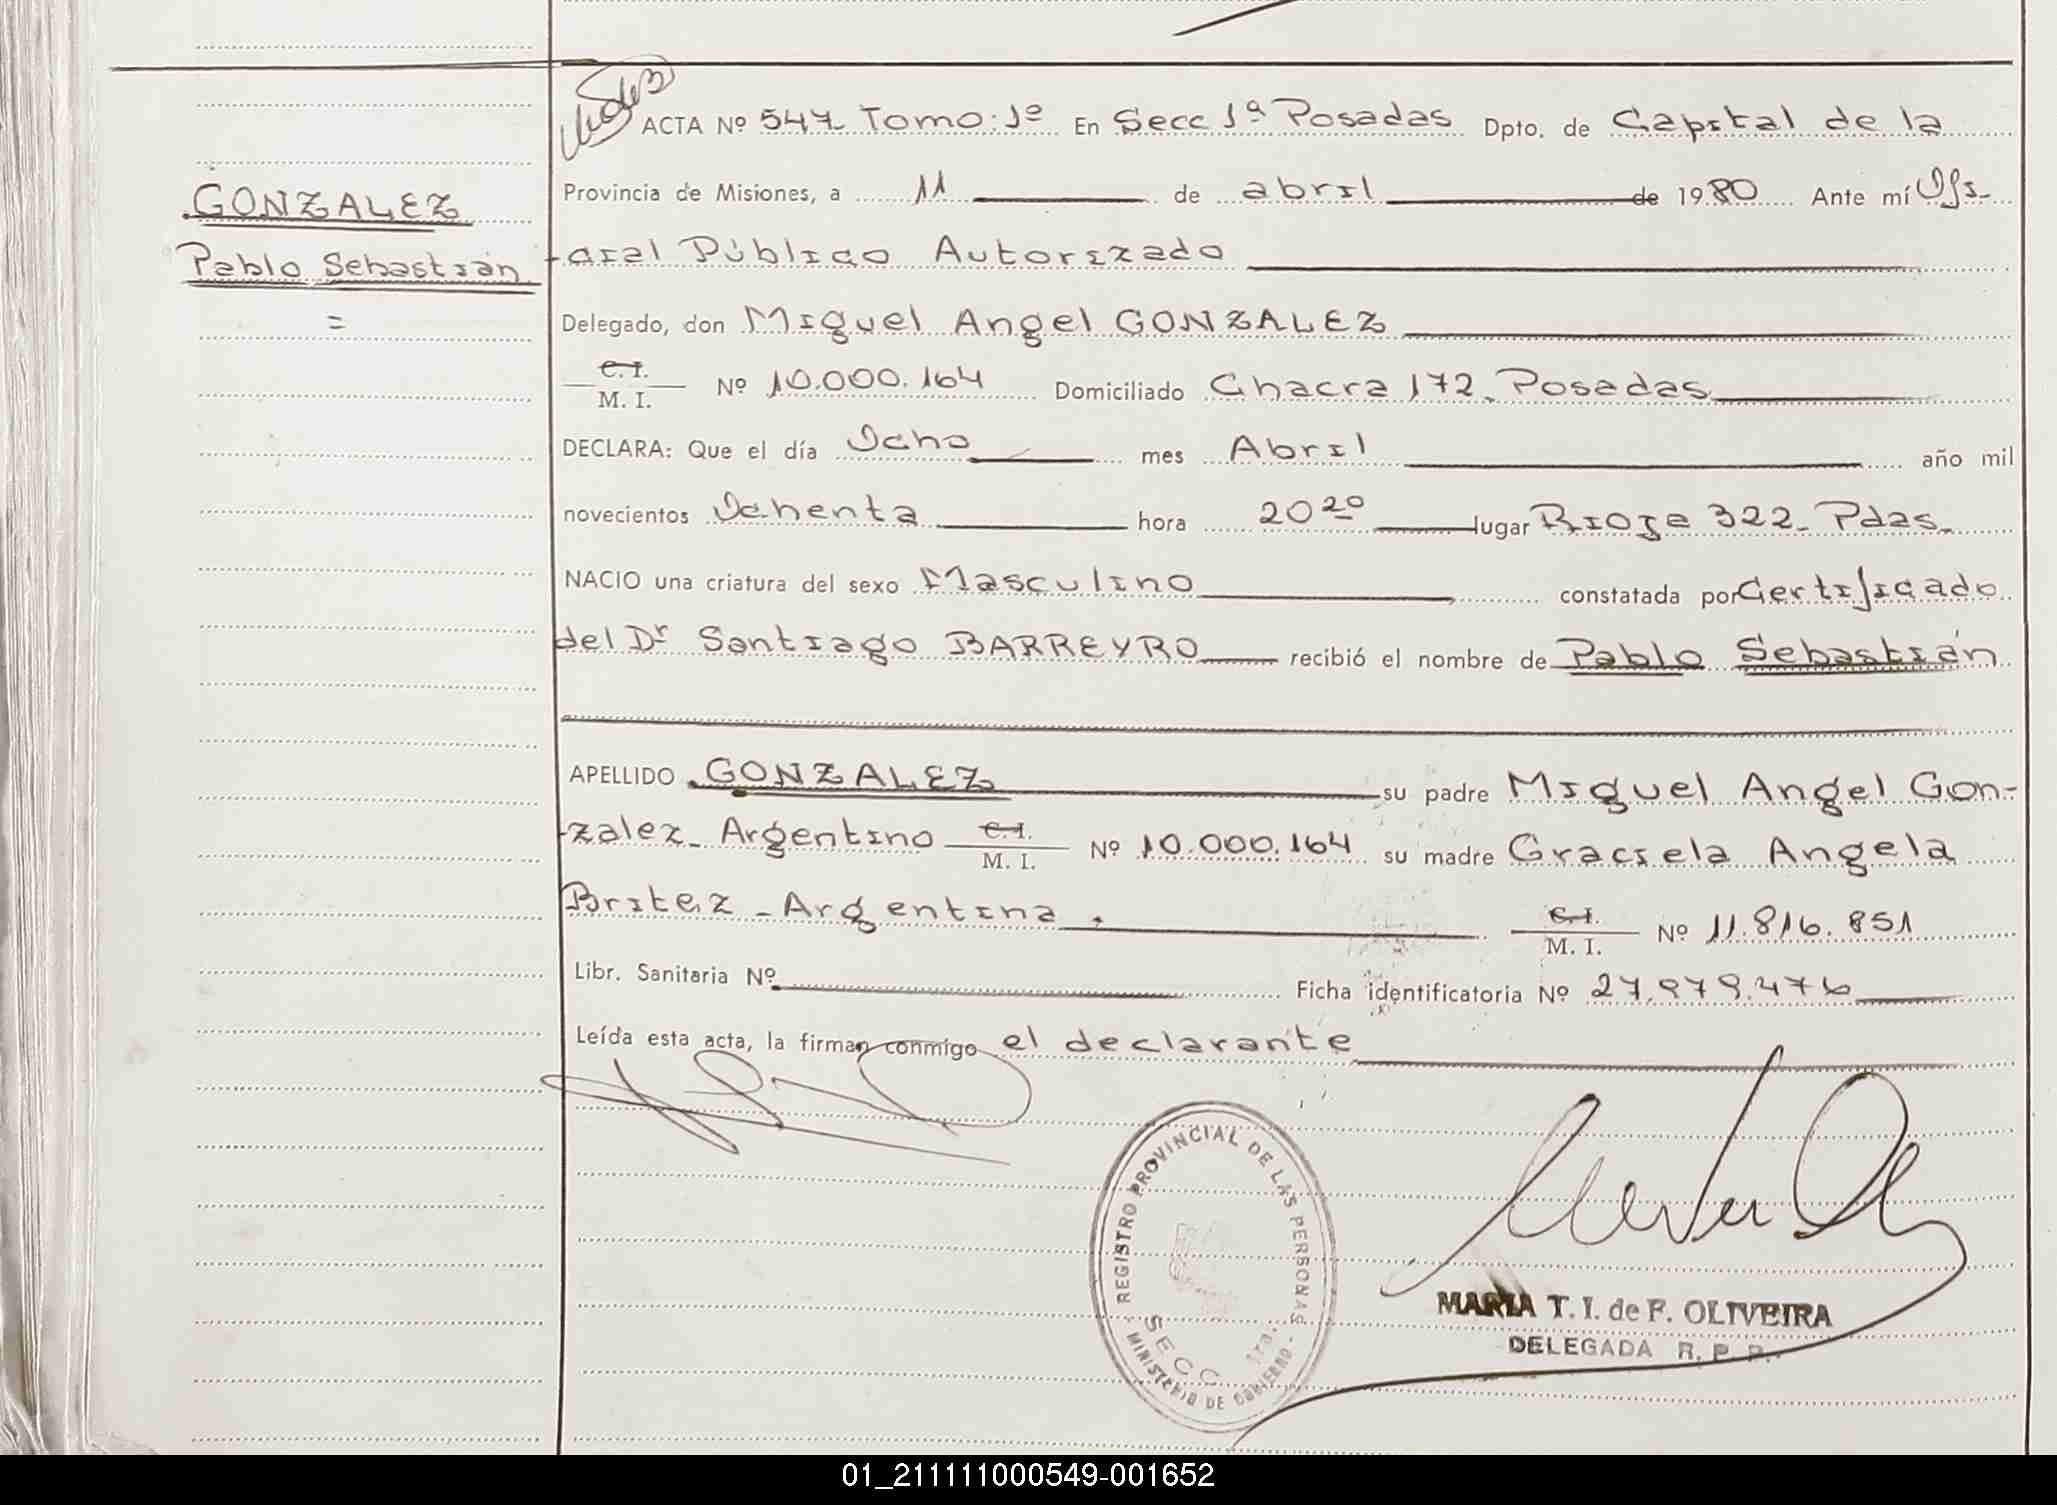 ACTA Nº 547 Tomo: 1º En Secc 1ª Posadas Dpto. de Capital de la
Provincia de Misiones, a 11 de abril de 1980 Ante mí Ofi-
GONZALEZ
Pablo Sebastián
=
cial Público Autorizado
Delegado, don Miguel Angel GONZALEZ
C. I.
M. I. Nº 10.000.164 Domiciliado Chacra 172. Posadas
DECLARA: Que el día Ocho mes Abril año mil
novecientos Ochenta hora 20 20 lugar Rioja 322- Pdas.
NACIO una criatura del sexo Masculino constatada por Certificado
del Dr Santiago BARREYRO recibió el nombre de Pablo Sebastián
APELLIDO GONZALEZ su padre Miguel Angel Gon-
zalez- Argentino C. I.
M. I. Nº 10.000.164 su madre Graciela Angela
Britez - Argentina. C. I.
M. I. Nº 11.816.851
Libr. Sanitaria Nº Ficha identificatoria Nº 27.979.476
Leída esta acta, la firman conmigo el declarante
REGISTRO PROVINCIAL DE LAS PERSONAS
SECC
MINISTERIO DE GOBIERNO
MARIA T. I. de F. OLIVEIRA
DELEGADA R. P. P.
01_211111000549-001652